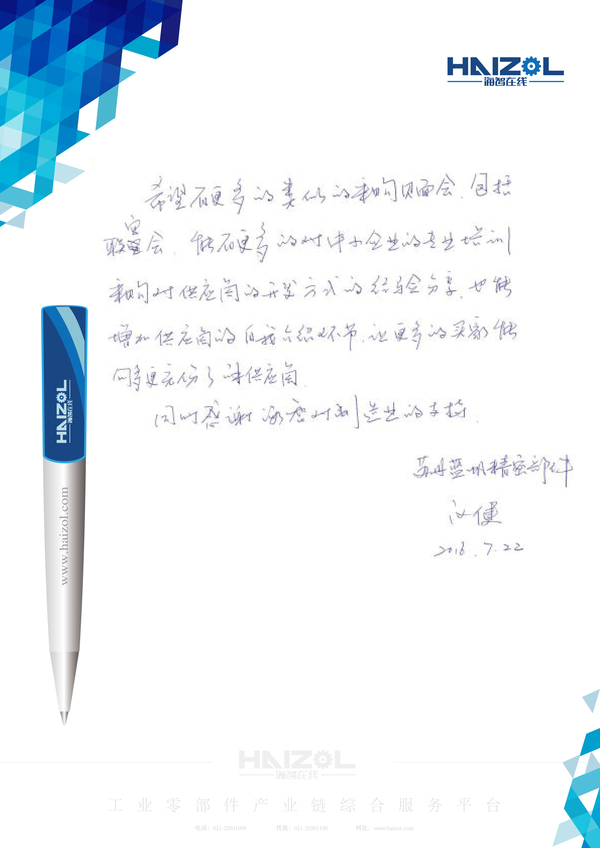 HAIZOL
海智在线
希望有更多的类似的采购见面会,包括
联盟会,能有更多的对中小企业的专业培训
采购对供应商的开发方式的经验分享,也能
增加供应商的自我介绍环节,让更多的买家能
够更充份了味供应商.
同时感谢海智对制造业的支持.
苏州蓝帆精密部件
2016.7.22
HAIZOL
海智在线
www.haizol.com
HAIZOL
海智在线
工业零部件产业链综合服务平台
网址:www.haizol.com